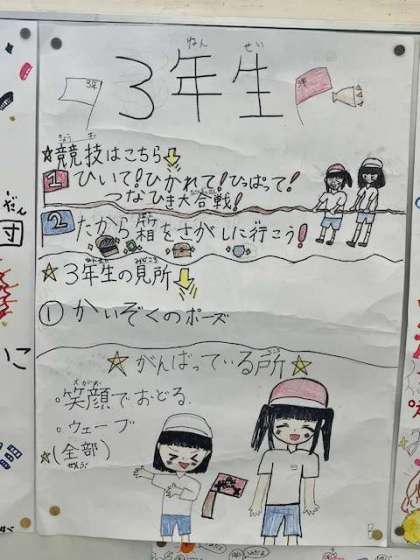 3年生
ねん せい
3年
☆競技はこちら
1 ひいて!ひかれて!ひっぱって!
つなひき大合戦!
2 たから箱をさがしに行こう!
☆3年生の見所
① かいぞくのポーズ
☆がんばっている所☆
えがお
・笑顔でおどる.
・ウェーブ
☆(全部)
ぜんぶ
だん
団